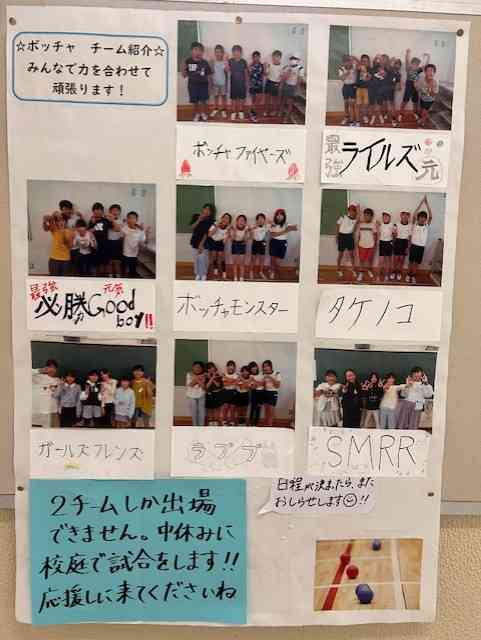 ☆ボッチャ チーム紹介☆
みんなで力を合わせて
頑張ります！
ボッチャファイヤーズ
最強
ライルズ
元
最強 元気
必勝Good
boy!!
ボッチャモンスター
タケノコ
ガールズフレンズ
ラブブ
SMRR
日程が決まったら、また
おしらせします☺!!
2チームしか出場
できません。中休みに
校庭で試合をします!!
応援しに来てくださいね